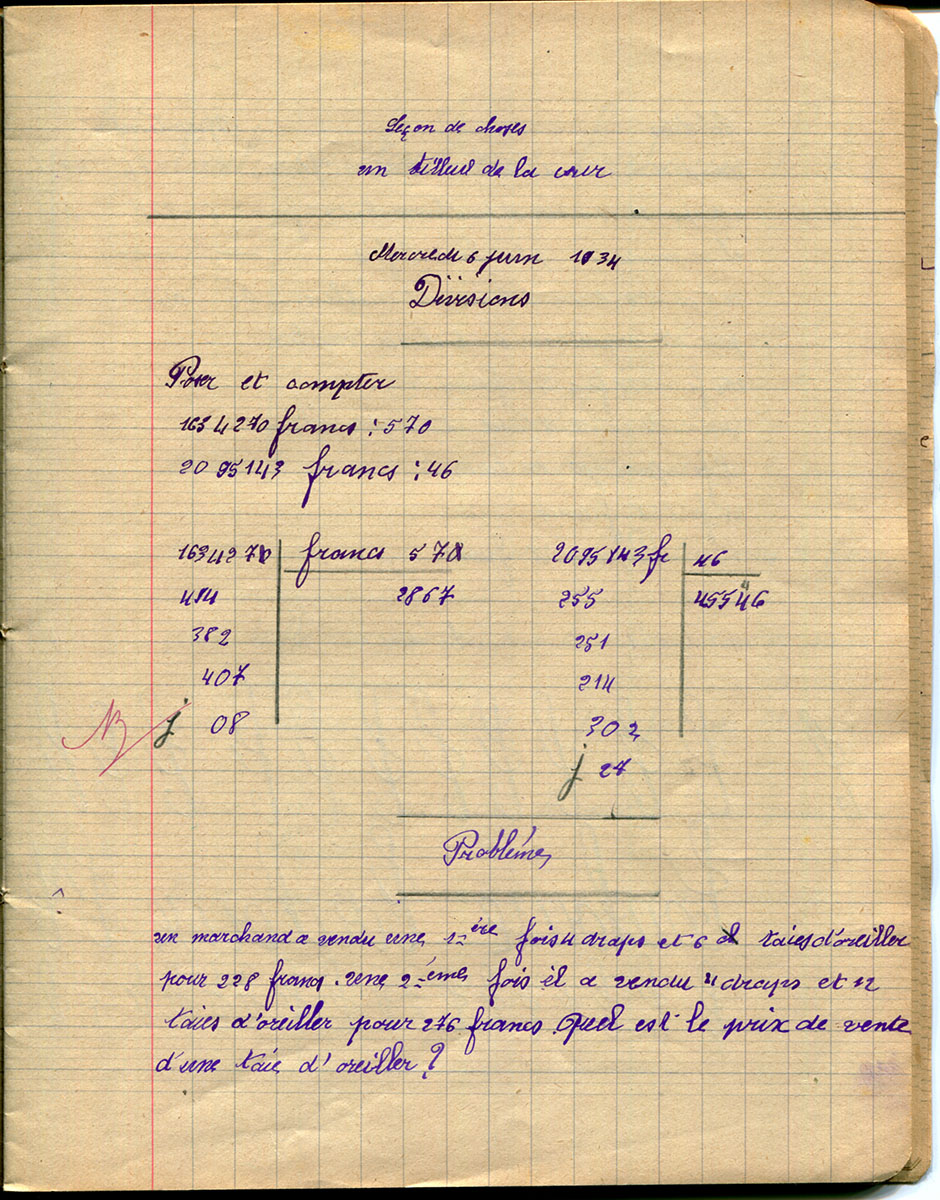 Leçon de choses
un tilleul de la cour
Mercredi 6 juin 1934
Divisions
Poser et compter
1634270 francs : 570
2095143 francs : 46
1634270 francs 570 2095143 fr 46
494 2867 255 45546
382 251
407 214
j 08 302
j 27
Problème
un marchand a vendu une 1ère fois 4 draps et 6 taies d'oreiller
pour 228 francs. une 2ème fois il a vendu 4 draps et 12
taies d'oreiller pour 276 francs. Quel est le prix de vente
d'une taie d'oreiller ?